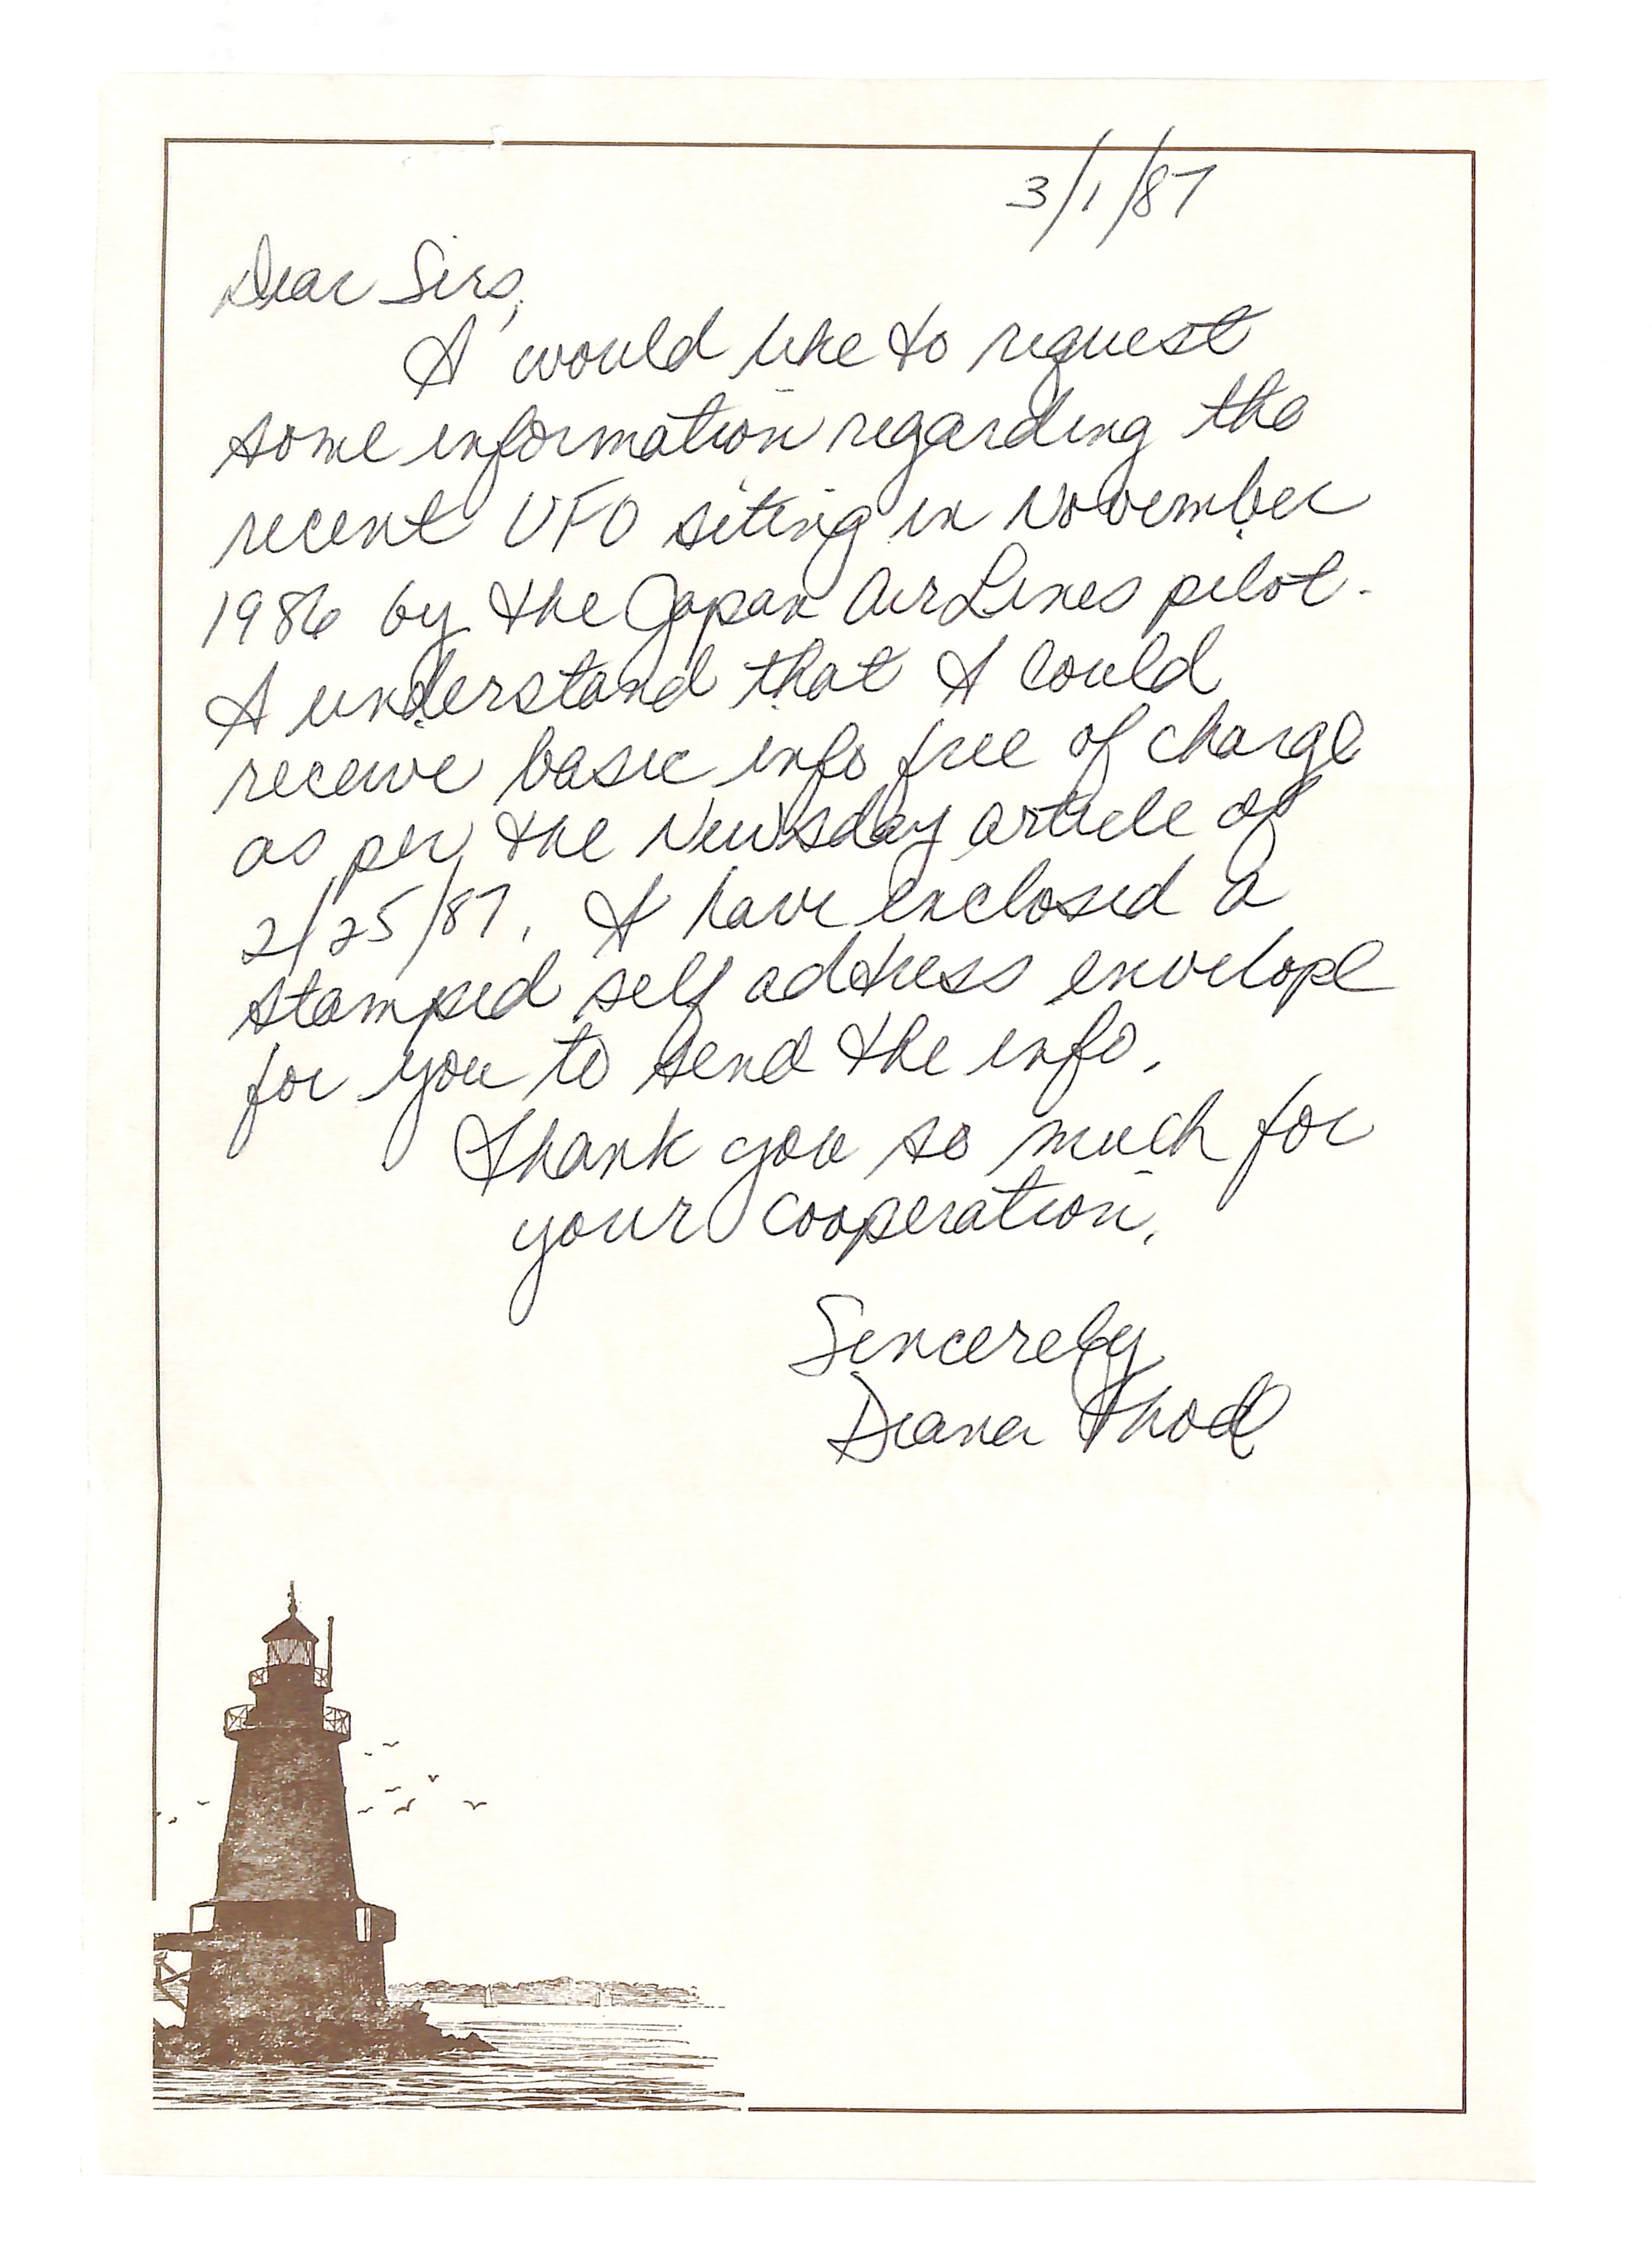 3/1/87
Dear Sirs,
I would like to request
some information regarding the
recent UFO siting in November
1986 by the Japan AirLines pilot.
I understand that I could
receive basic info free of charge
as per the Newsday article of
2/25/87. I have enclosed a
stamped self address envelope
for you to send the info.
Thank you so much for
your cooperation.
Sincerely
Diana